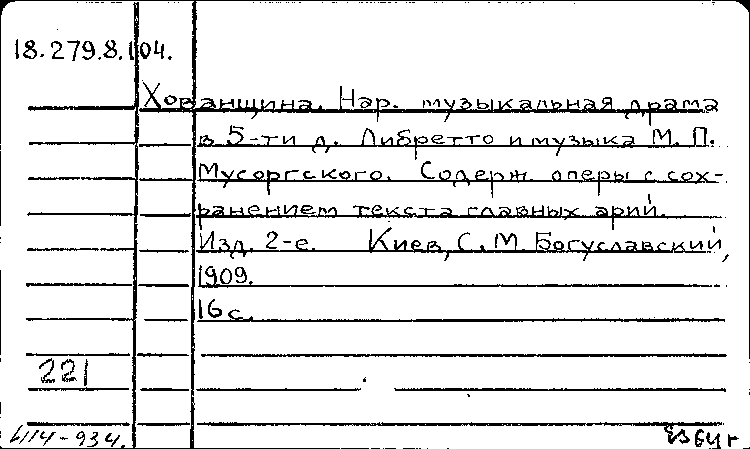 18.279.8.104.
Хованщина. Нар. музыкальная драма
в 5-ти д. Либретто и музыка М. П.
Мусоргского. Содерж. оперы с сох-
ранением текста главных арий.
Изд. 2-е. Киев, С. М. Богуславский,
1909.
16 с.
221
64г